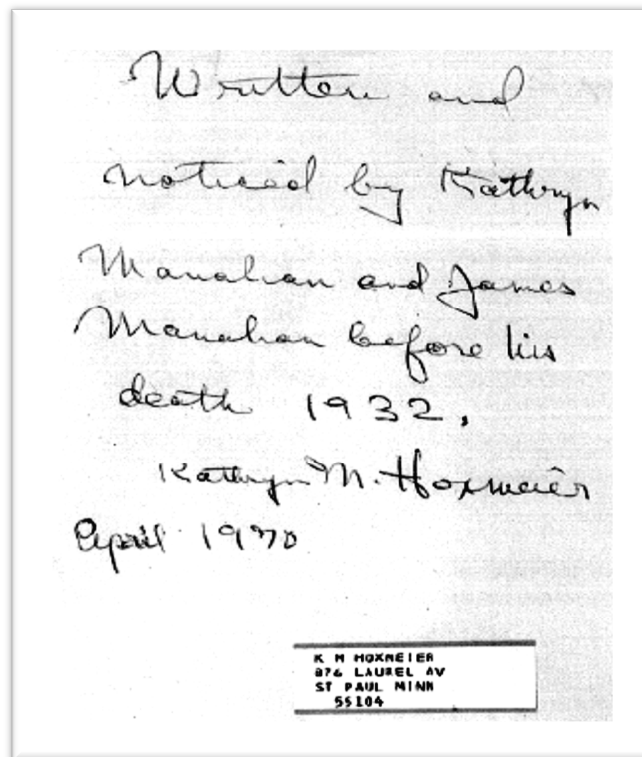 Written and
noticed by Kathryn
Manahan and James
Manahan before his
death 1932.
Kathryn M. Hoxmeier
April 1970
K M HOXMEIER
876 LAUREL AV
ST PAUL MINN
55104